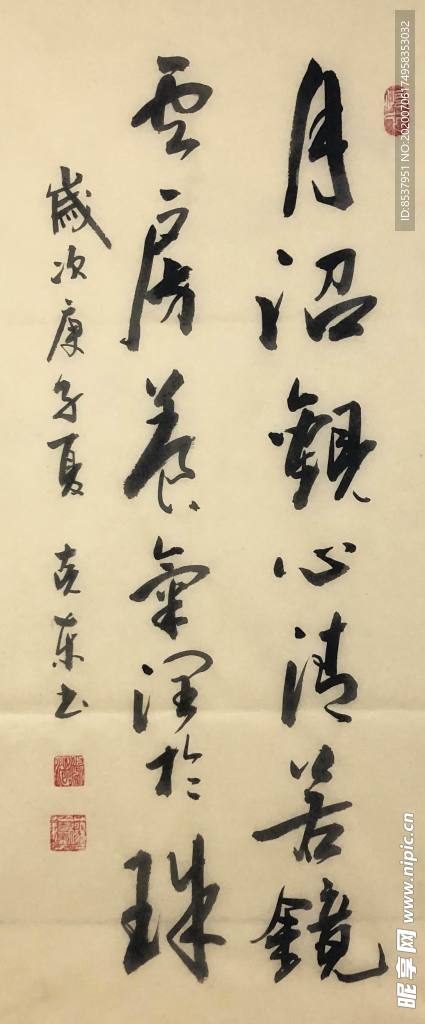 月沼觀心清若鏡
雲房養氣潤於珠
歲次庚子夏 克東书
ID:8537951 NO:20200706174958353032
昵享网 www.nipic.cn